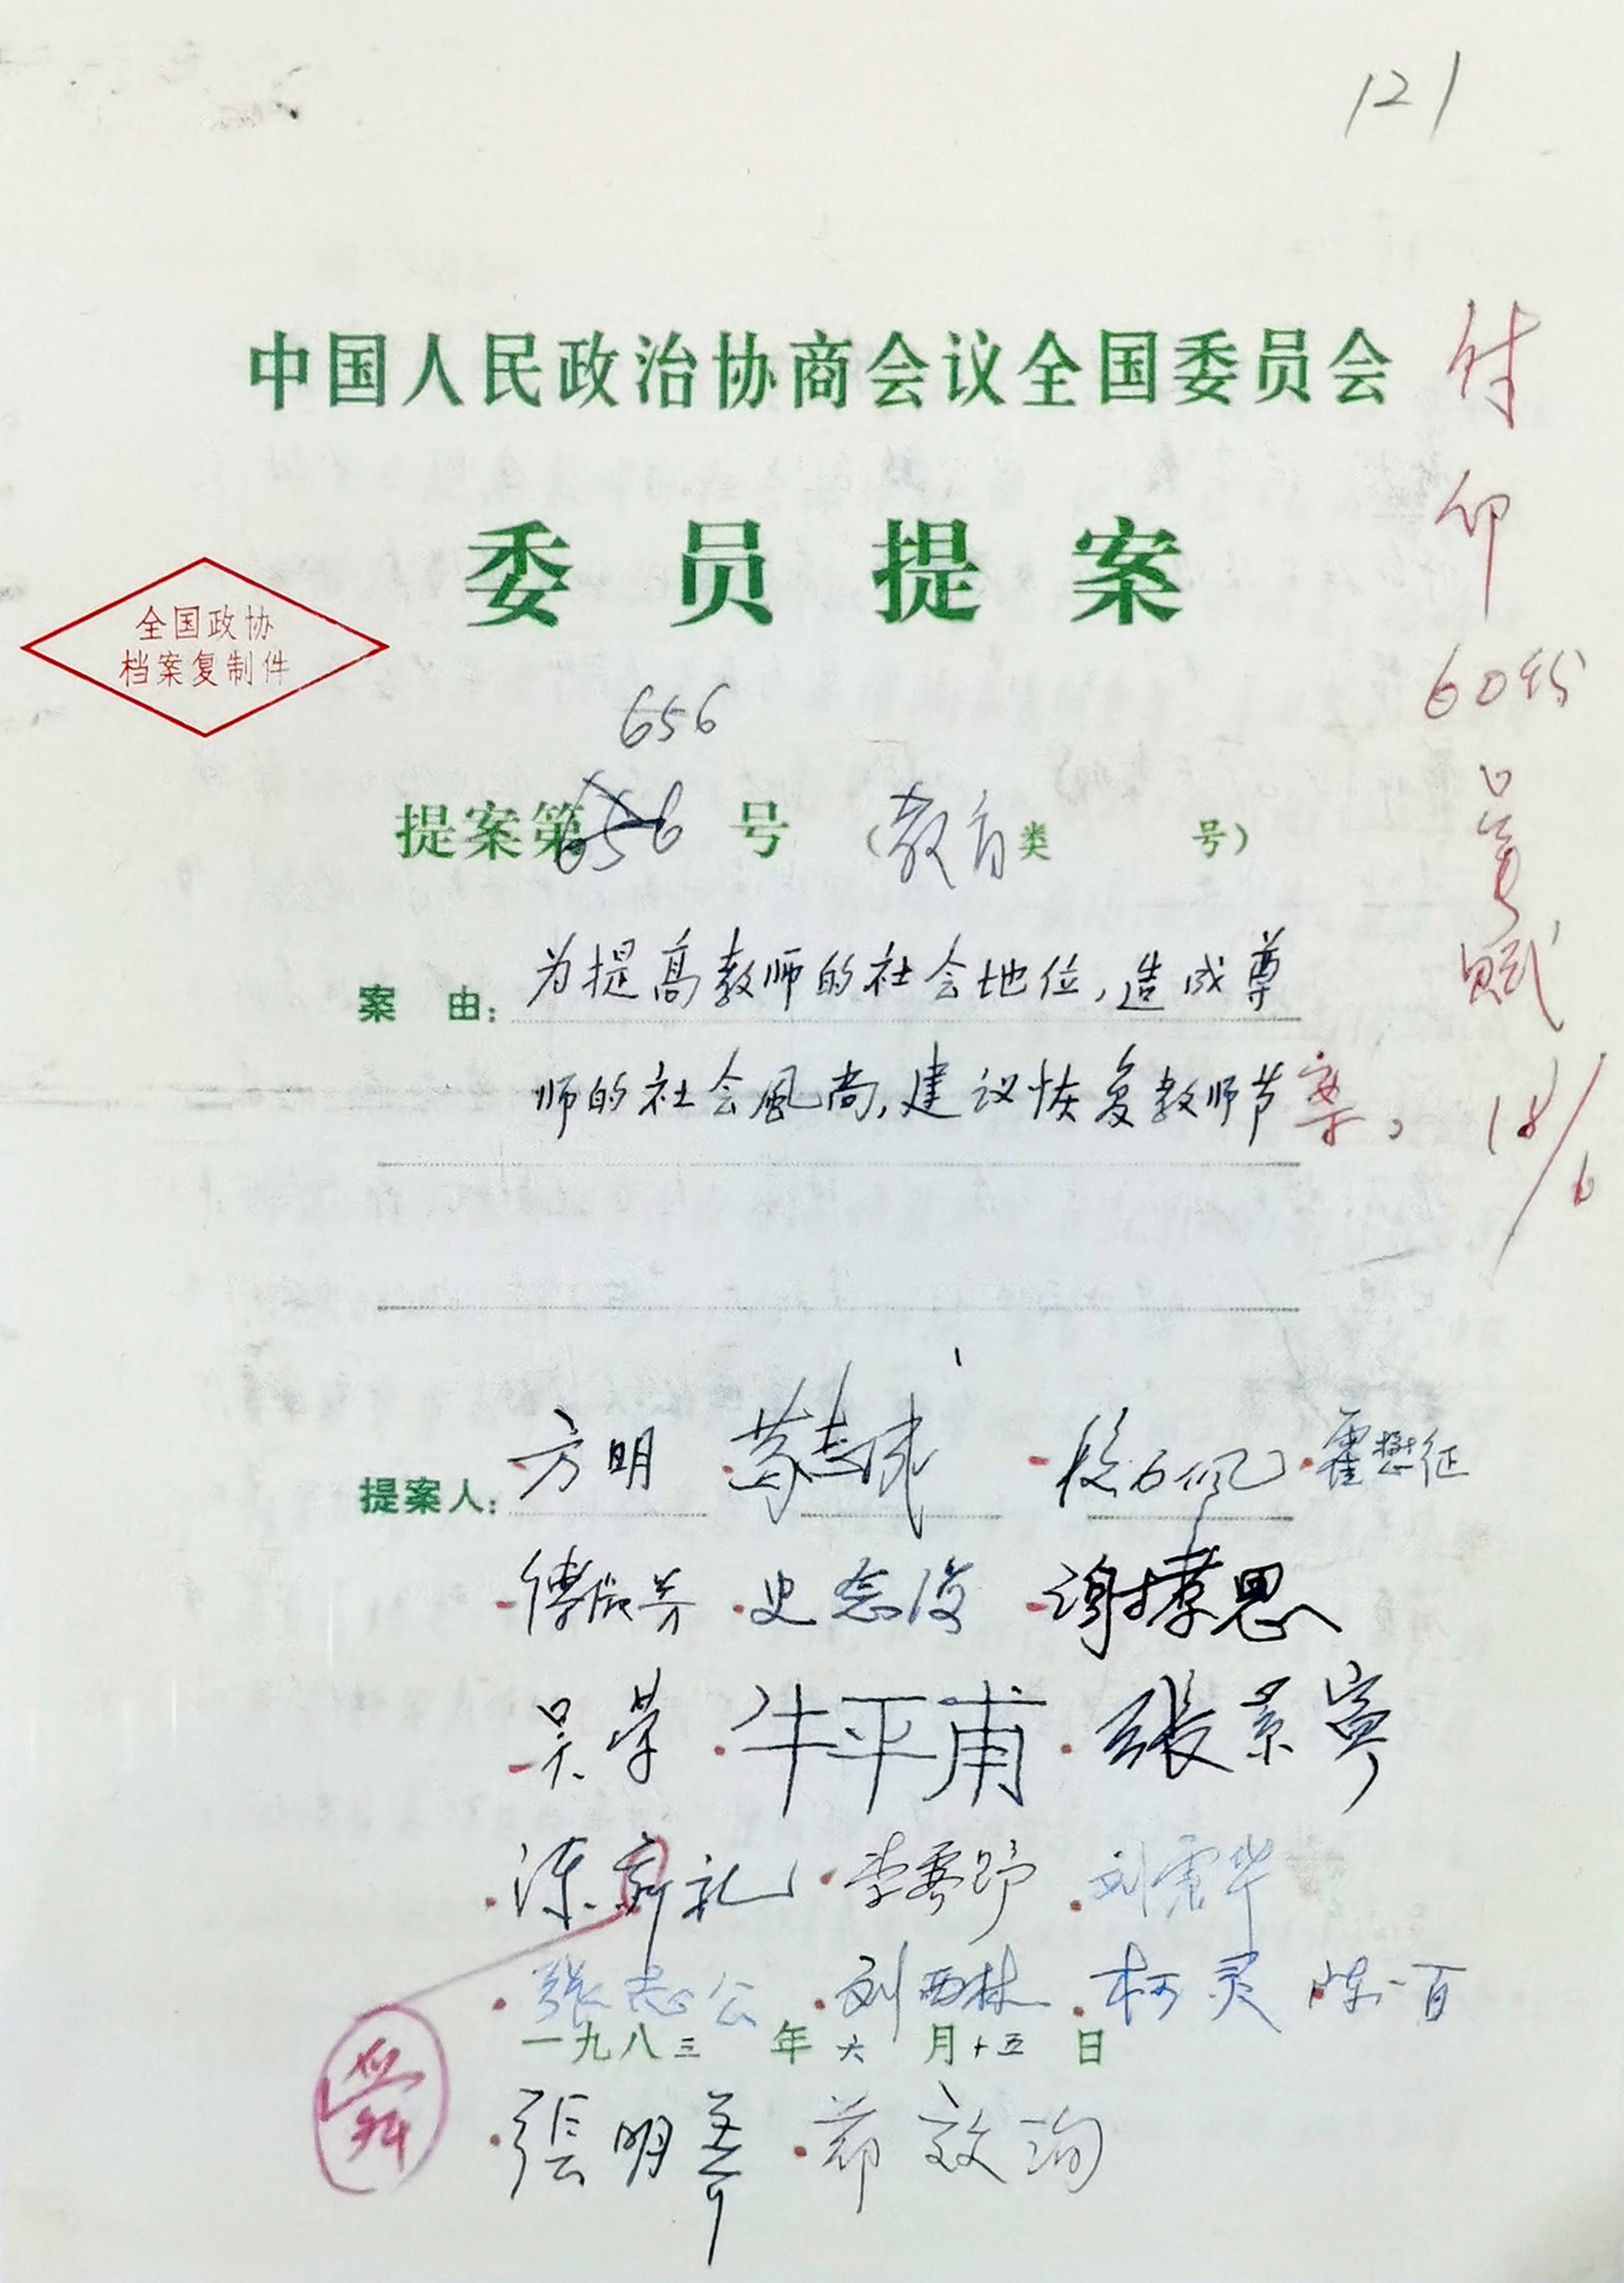 121
中国人民政治协商会议全国委员会
委员提案
全国政协
档案复制件
656
提案第656号（教育类 号）
案由：为提高教师的社会地位，造成尊
师的社会風尚，建议恢复教师节案。
付印
60份
18/6
提案人：方明 葛志成 段力佩 霍懋征
傅 史念海 谢孝思
吴学 牛平甫 張景寧
陈 礼 李霁野 刘霜华
张志公 刘西林 柯灵 陈一百
一九八三年六月十五日
張明養 郑效洵